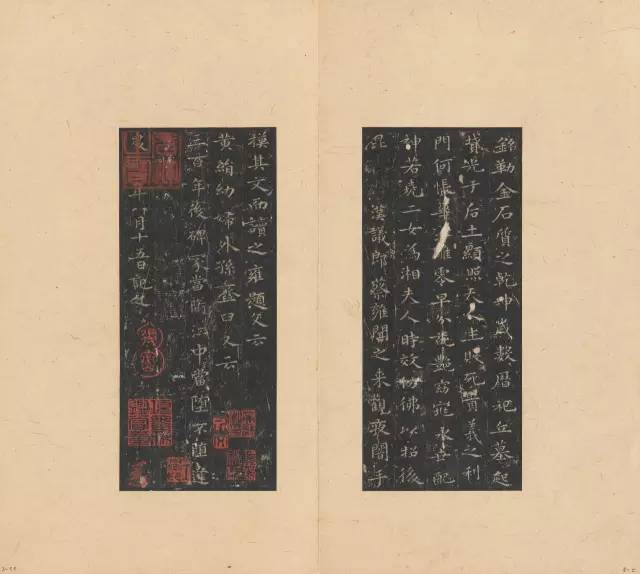 銘勒金石質之乾坤歲數曆祀丘墓起
墳光于后土顯照天人生賤死貴義之利
門何悵華落雕零早分葩艷窈窕永世配
神若堯二女為湘夫人時效仿佛以招後
昆 漢議郎蔡雍聞之來觀夜闇手
摸其文而讀之雍題文云
黃絹幼婦外孫齏臼又云
三百年後碑冢當墮江中當墮不墮逢
年八月十五日記之